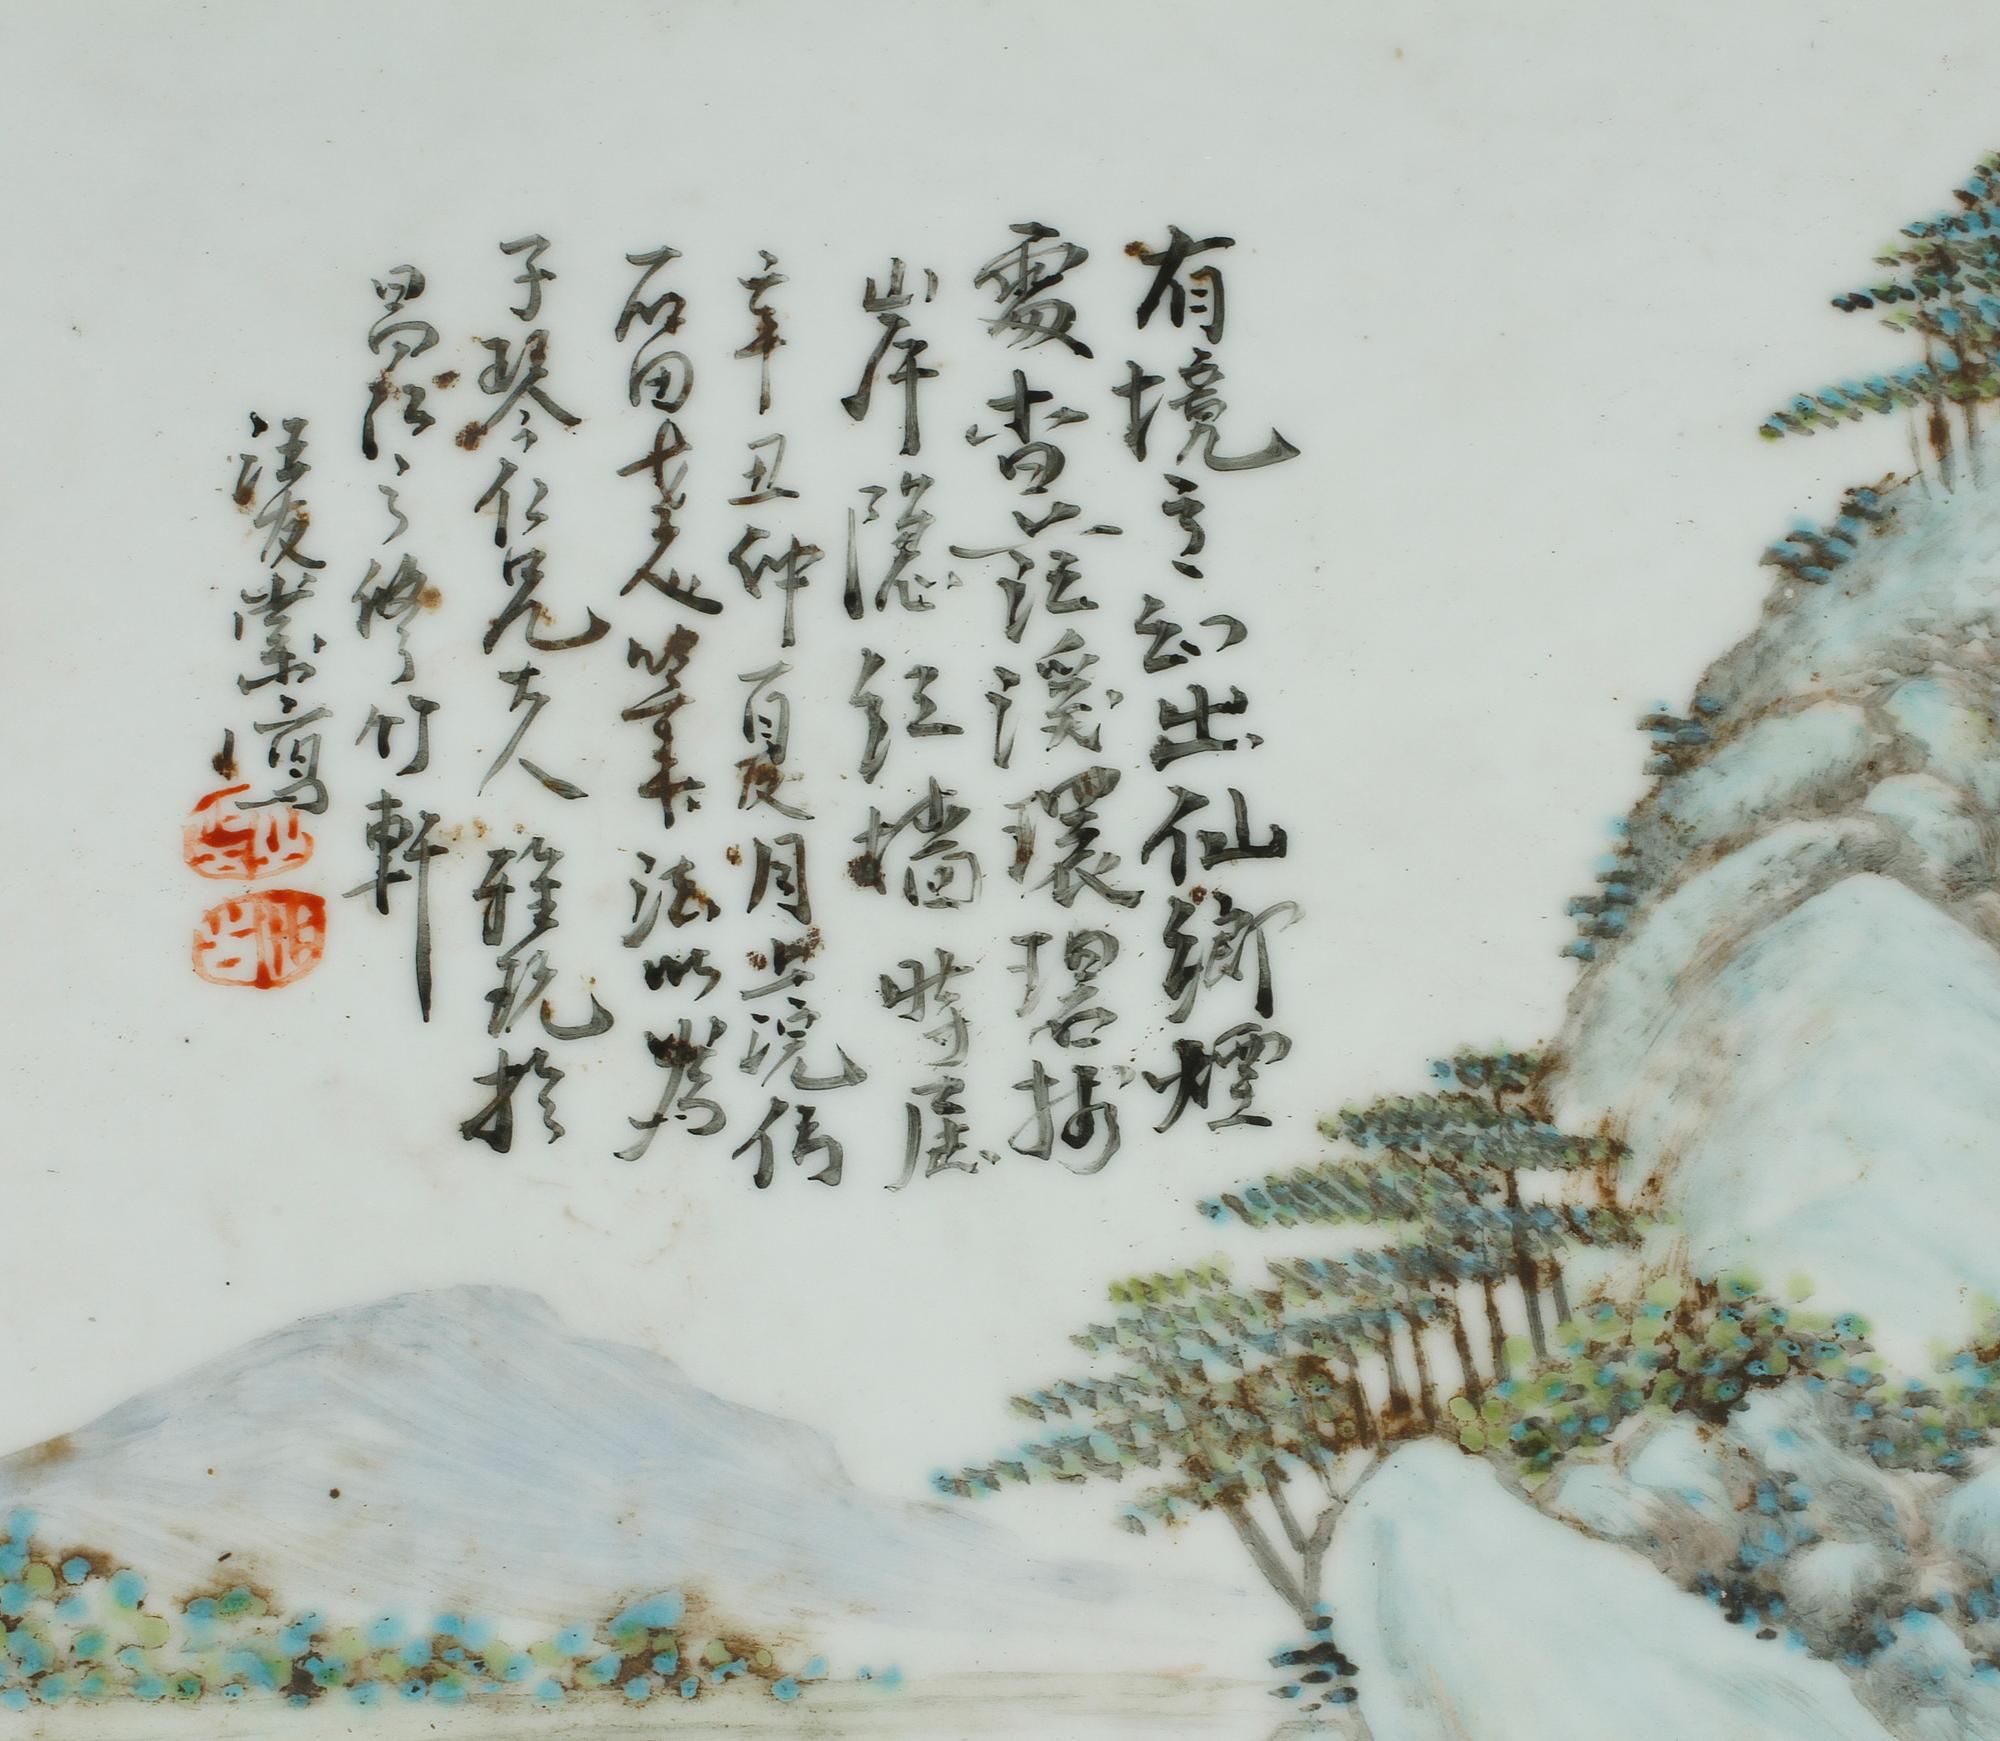 有境幻出仙鄉煙
霞杳茫溪環碧
山岸隱紅墻時屆
辛丑仲夏月上浣仿
石田老人筆法以為
子琴仁兄大人雅玩於
昌江之修竹軒
汪友棠寫